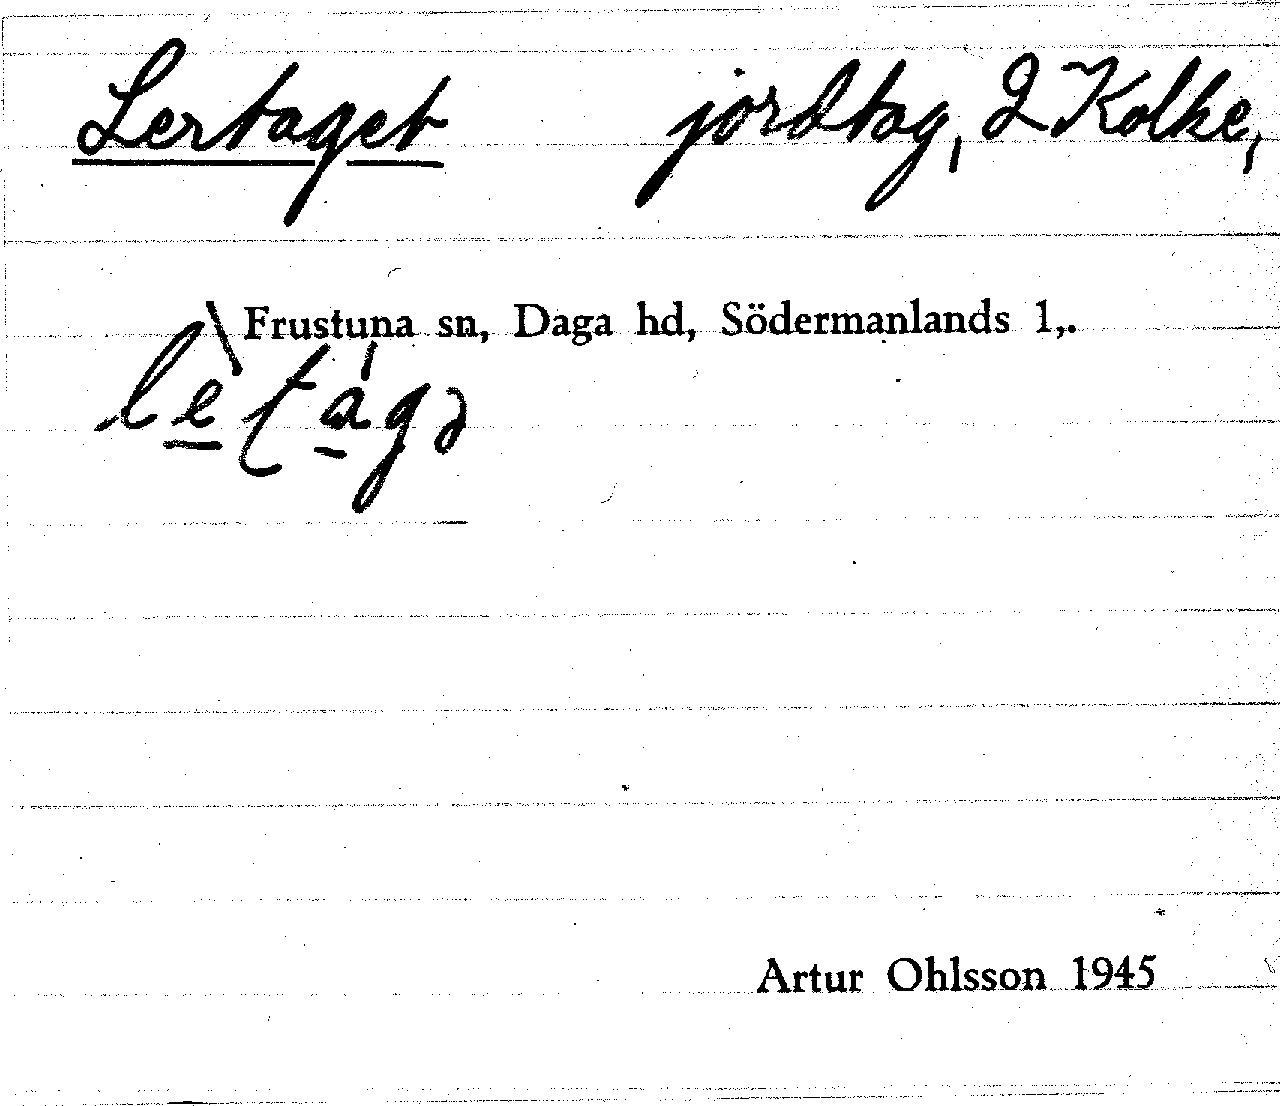 Lertaget jordtag, 2 Kolke,
Frustuna sn, Daga hd, Södermanlands l,.
Artur Ohlsson 1945